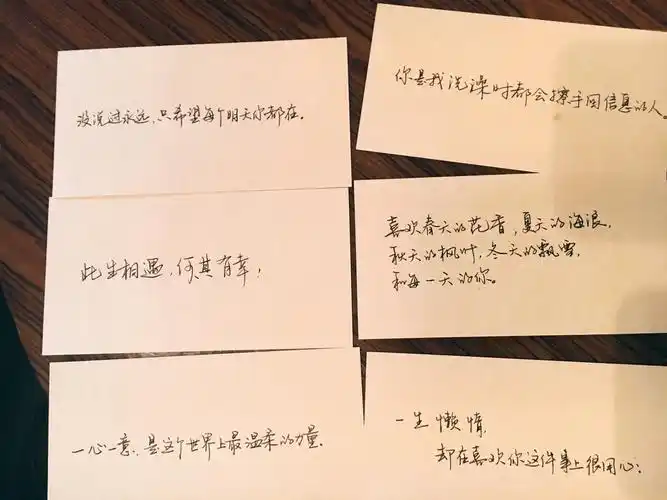 没说过永远，只希望每个明天你都在。
你是我洗澡时都会擦手回信息的人。
此生相遇，何其有幸，
喜欢春天的花香，夏天的海浪，
秋天的枫叶，冬天的飘雪，
和每一天的你。
一心一意，是这个世界上最温柔的力量。
一生懒惰，
却在喜欢你这件事上很用心；